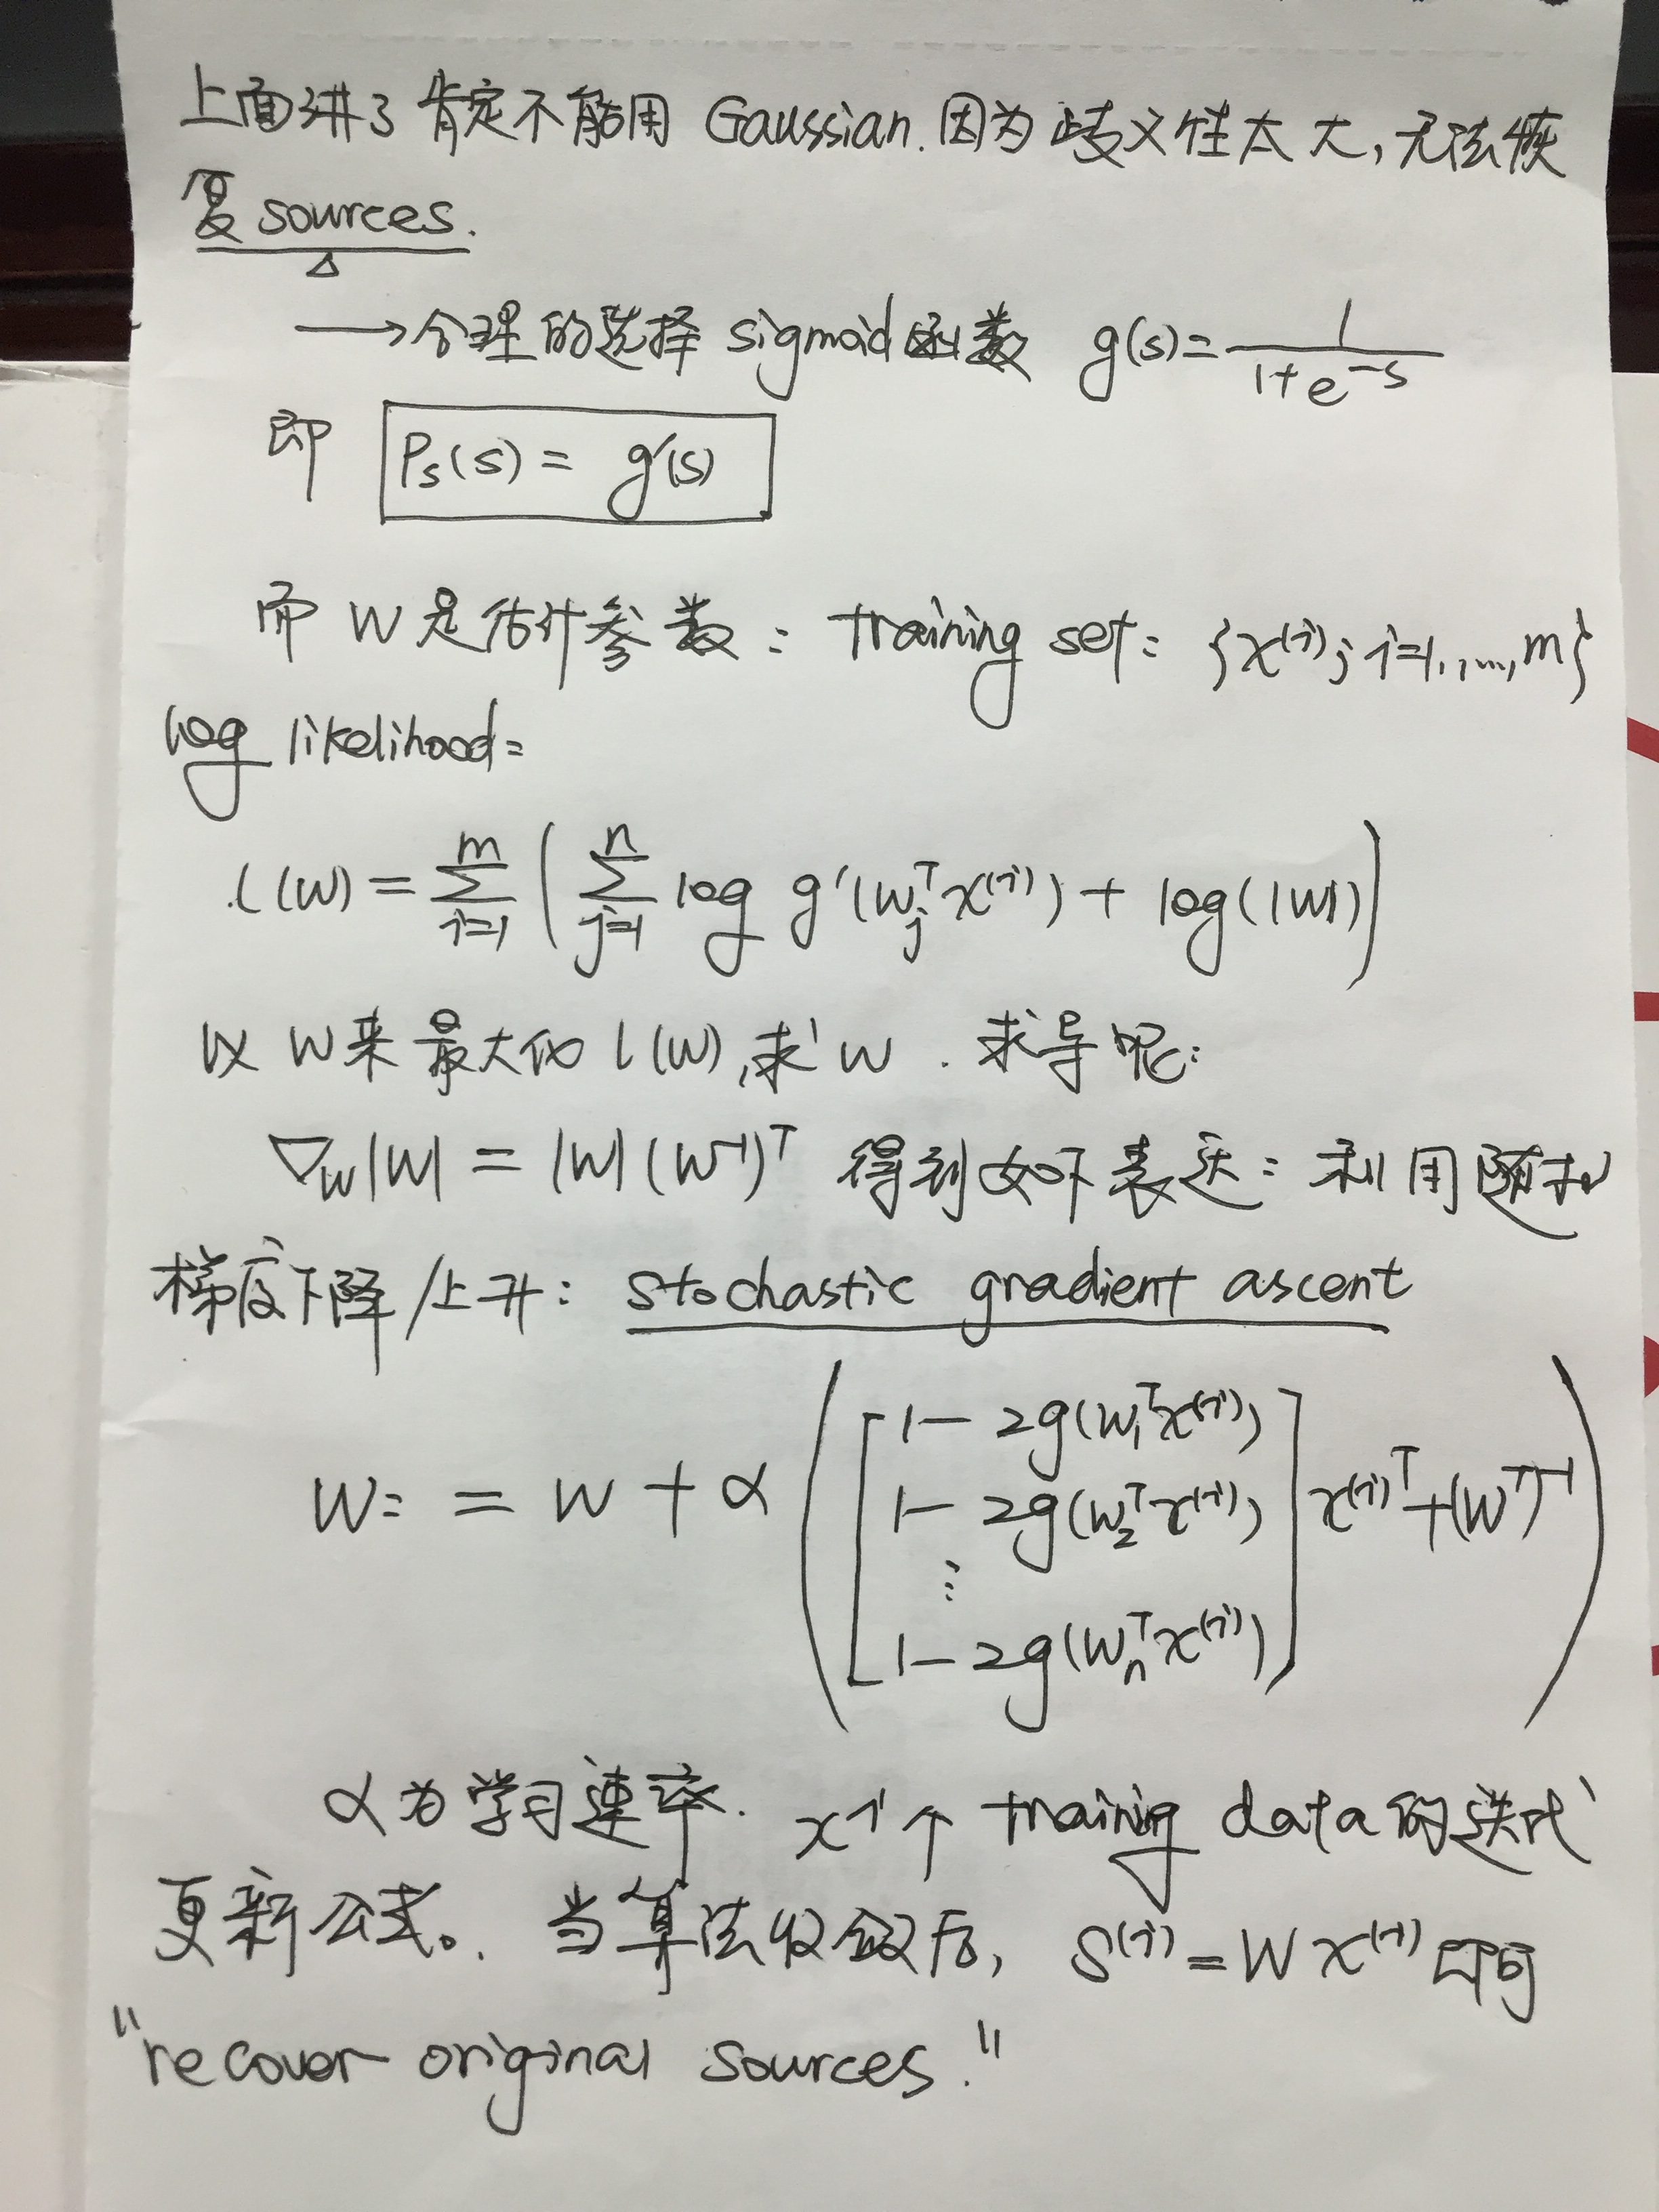 上面讲了肯定不能用 Gaussian. 因为歧义性太大, 无法恢
复 sources.
→ 合理的选择 sigmoid 函数 g(s) = 1/(1+e^{-s})
即 P_s(s) = g'(s)
而 W 是估计参数: training set: {x^{(i)}; i=1,...,m}
log likelihood:
l(W) = \sum_{i=1}^{m} ( \sum_{j=1}^{n} log g'(w_j^T x^{(i)}) + log(|W|) )
以 W 来最大化 l(W), 求 W. 求导呢:
∇_W |W| = |W| (W^{-1})^T 得到如下表达: 利用随机
梯度下降/上升: stochastic gradient ascent
W: = W + α ( [ 1 - 2g(w_1^T x^{(i)})
1 - 2g(w_2^T x^{(i)})
⋮
1 - 2g(w_n^T x^{(i)}) ] x^{(i)T} + (W^T)^{-1} )
α 为学习速率. x^i ↑ trainig data 的迭代
更新公式。. 当算法收敛后, S^{(i)} = W x^{(i)} 即可
"recover original sources."